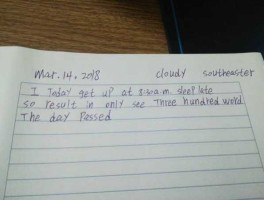 Mar.14.2018 cloudy southeaster
I Today get up at 8:30a.m. sleep late
so result in only see Three hundred word
The day Passed